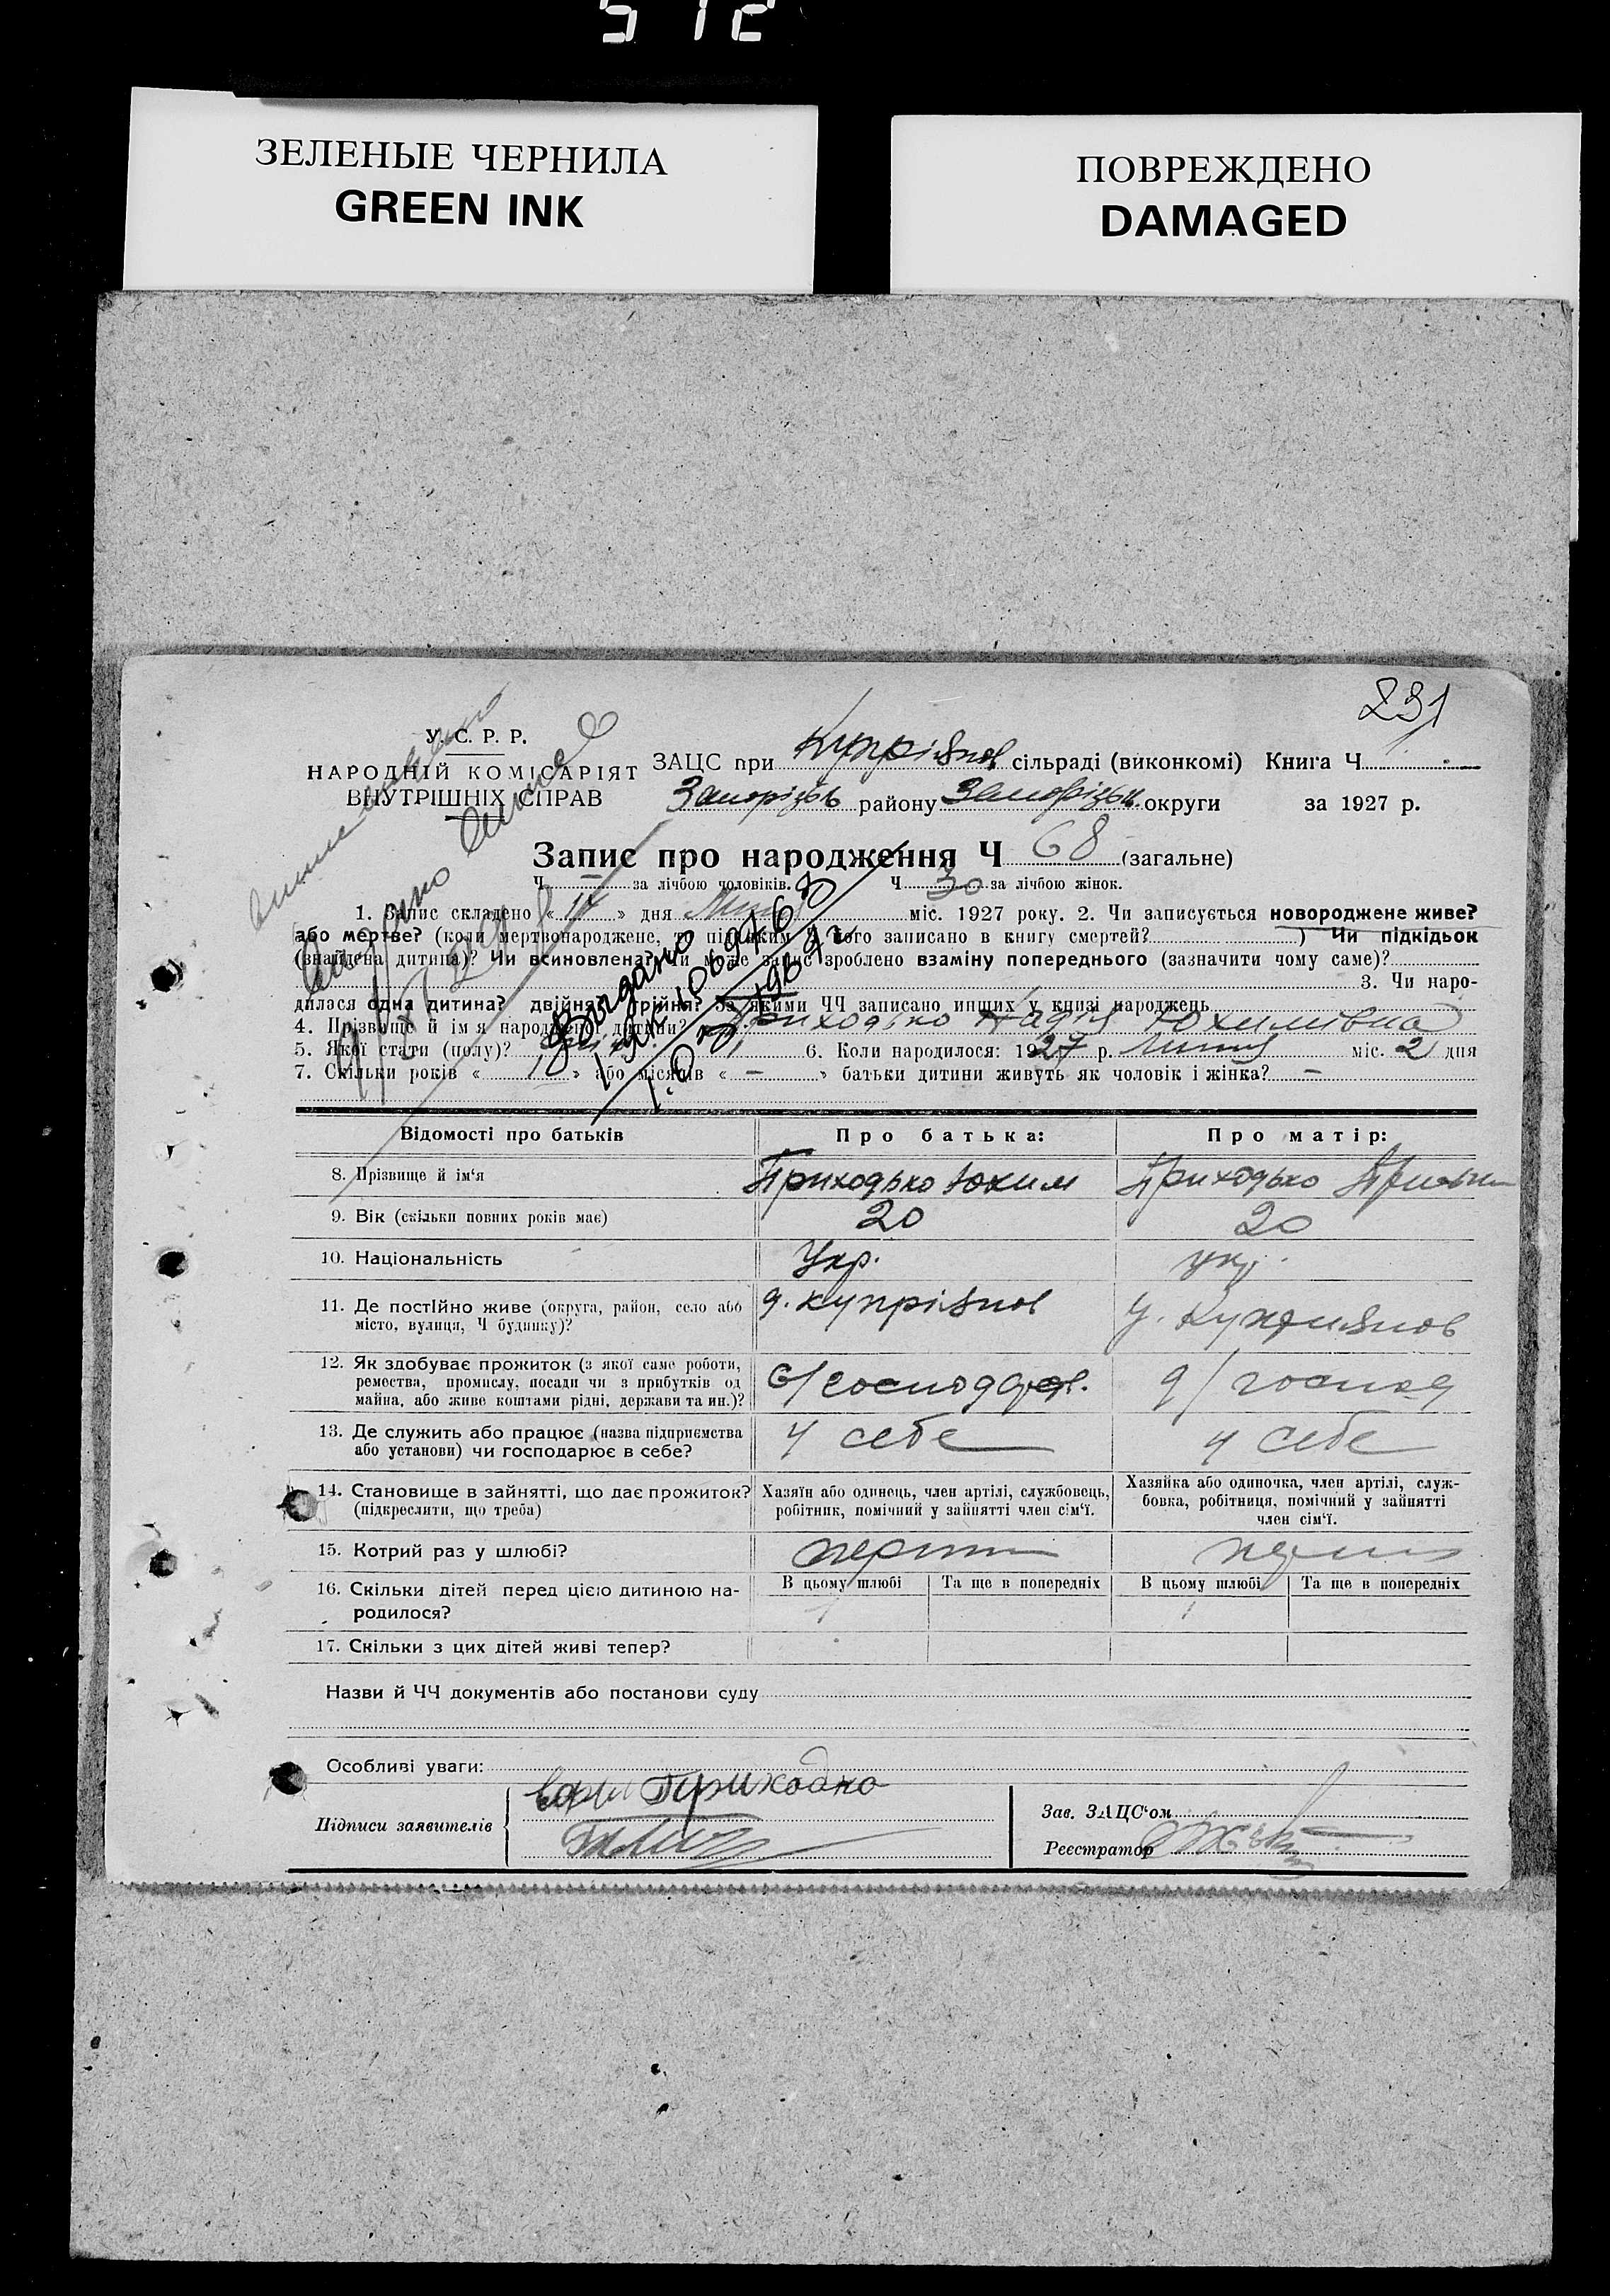 512
ЗЕЛЕНЫЕ ЧЕРНИЛА
GREEN INK
ПОВРЕЖДЕНО
DAMAGED
231
У. С. Р. Р.
НАРОДНІЙ КОМІСАРІЯТ
ВНУТРІШНІХ СПРАВ
ЗАЦС при Купріянов сільраді (виконкомі) Книга Ч
Запорізьк району Запорізьк округи за 1927 р.
Запис про народження Ч 68 (загальне)
Ч — за лічбою чоловіків. Ч 30 за лічбою жінок.
1. Запис складено « » дня Липня міс. 1927 року. 2. Чи записується новороджене живе?
або мертве? (коли мертвонароджене, то під яким Ч його записано в книгу смертей? ) Чи підкідьок
(знайдена дитина)? Чи всиновлена? Чи може запис зроблено взаміну попереднього (зазначити чому саме)?
3. Чи наро-
дилася одна дитина? двійня? трійня? За якими ЧЧ записано инших у книзі народжень
4. Прізвище й ім'я народженої дитини? Приходько Надія Юхимівна
5. Якої стати (полу)? 6. Коли народилося: 1927 р. Липня міс. 2 дня
7. Скільки років « 1 » або місяців « — » батьки дитини живуть як чоловік і жінка? —
Выдано
Відомості про батьків
Про батька:
Про матір:
8. Прізвище й ім'я
Приходько Юхим
Приходько
9. Вік (скільки повних років має)
20
20
10. Національність
Укр.
укр.
11. Де постійно живе (округа, район, село або
місто, вулиця, Ч будинку)?
д. Купріянов
Купріянов
12. Як здобуває прожиток (з якої саме роботи,
ремества, промислу, посади чи з прибутків од
майна, або живе коштами рідні, держави та ин.)?
С/господар.
д/господ
13. Де служить або працює (назва підприємства
або установи) чи господарює в себе?
У себе
у себе
14. Становище в зайнятті, що дає прожиток?
(підкреслити, що треба)
Хазяїн або одинець, член артілі, службовець,
робітник, помічний у зайнятті член сім'ї.
Хазяйка або одиночка, член артілі, служ-
бовка, робітниця, помічний у зайнятті
член сім'ї.
15. Котрий раз у шлюбі?
перший
перший
16. Скільки дітей перед цією дитиною на-
родилося?
В цьому шлюбі
Та ще в попередніх
В цьому шлюбі
Та ще в попередніх
1
1
17. Скільки з цих дітей живі тепер?
Назви й ЧЧ документів або постанови суду
Особливі уваги:
Підписи заявителів
Приходко
Зав. ЗАЦС'ом
Реєстратор